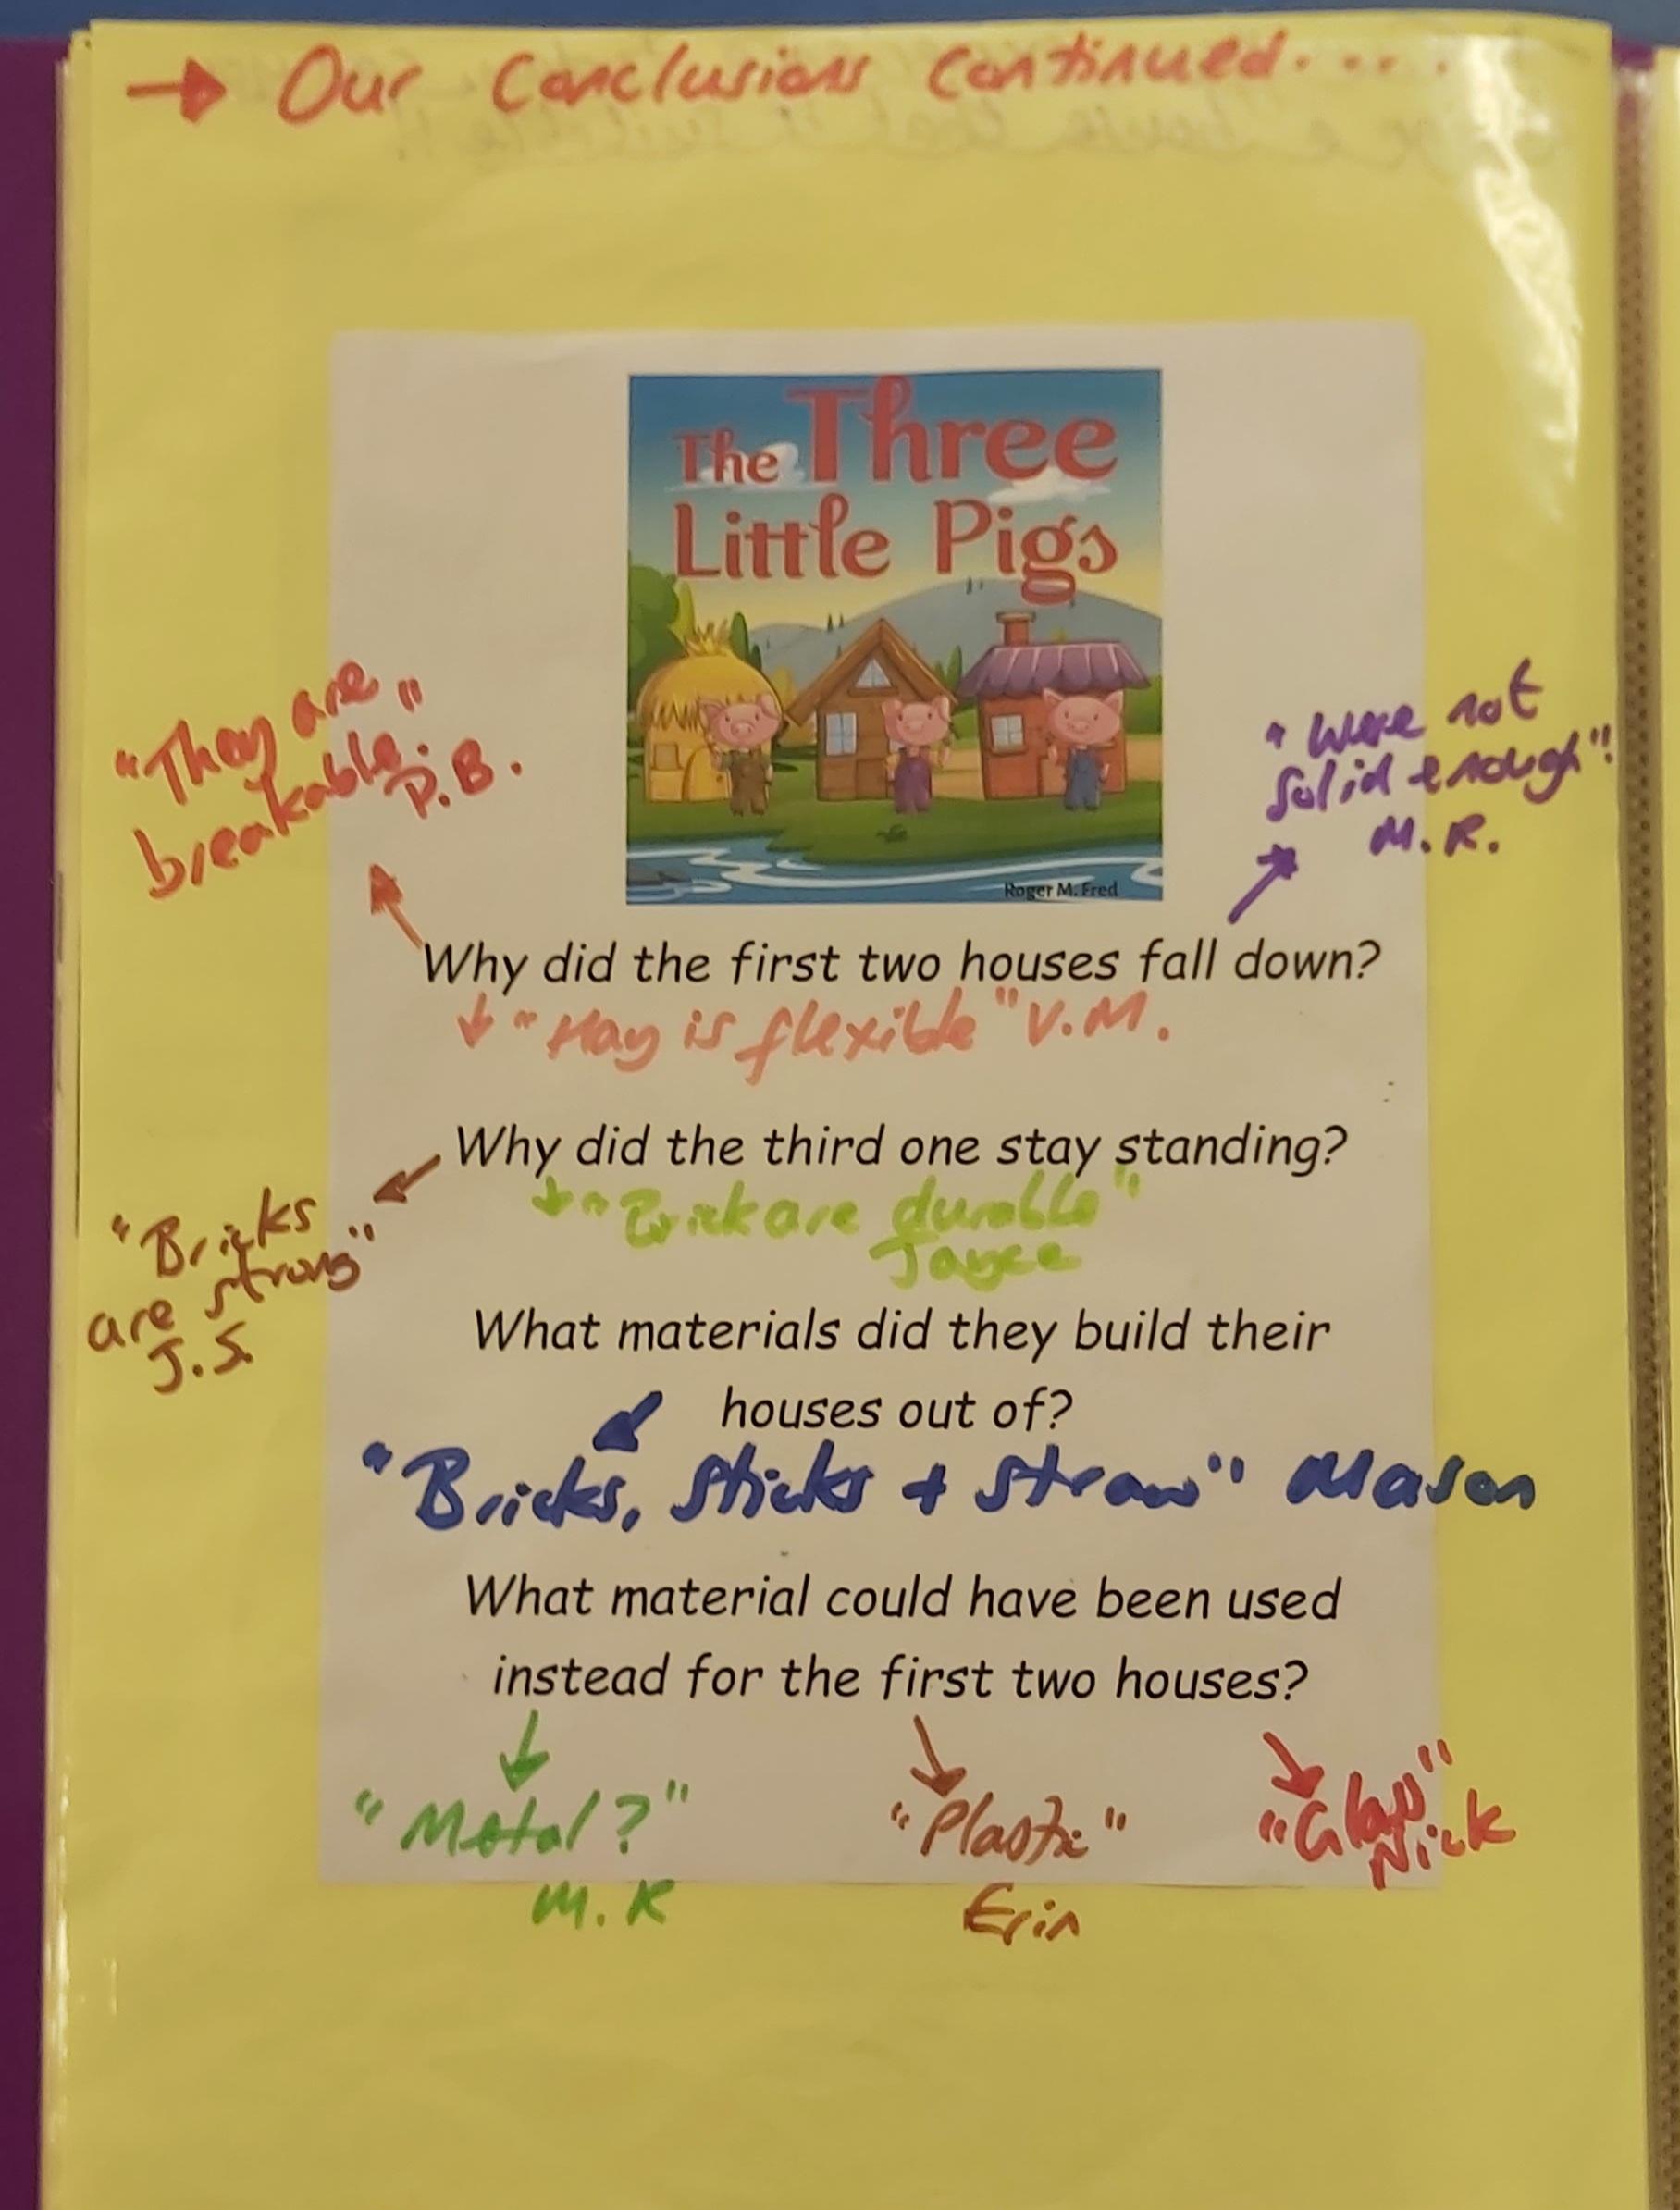 → Our Conclusions Continued....
The Three
Little Pigs
Roger M. Fred
"They are
breakable."
P.B.
"Were not
solid enough"!
M.R.
Why did the first two houses fall down?
↓ "Hay is flexible" V.M.
Why did the third one stay standing?
↓ "Brick are durable"
Jayce
"Bricks
are strong"
J.S.
What materials did they build their
houses out of?
"Bricks, Sticks + Straw" Mason
What material could have been used
instead for the first two houses?
"Metal?"
M.K
"Plastic"
Erin
"Glass"
Nick